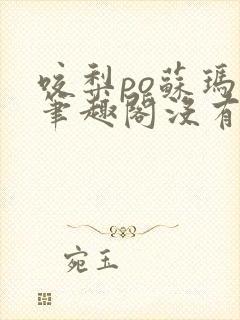 咬梨po蘇瑪
筆趣閣沒有
宛玉